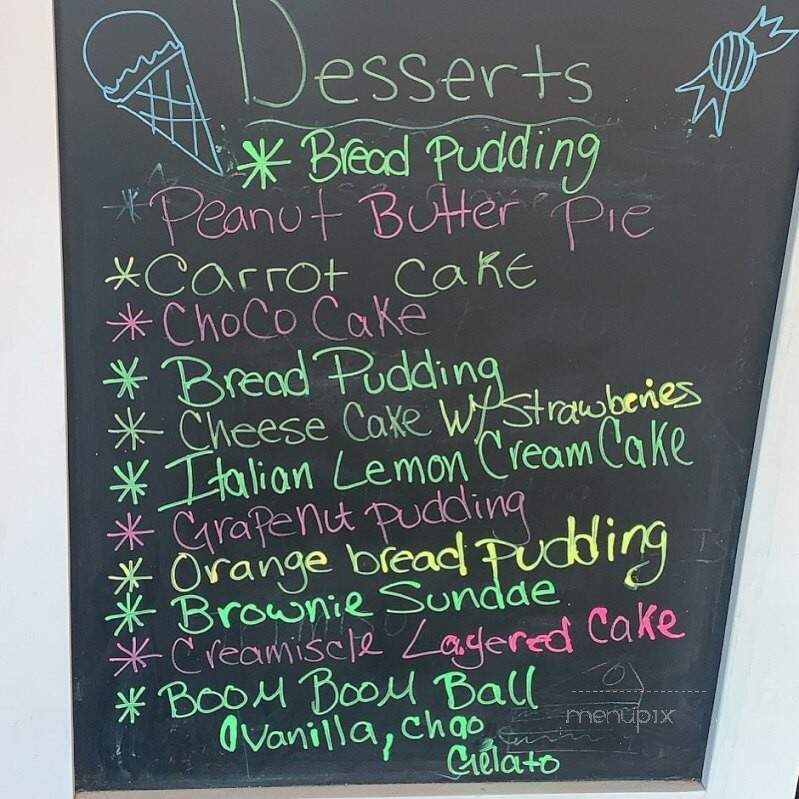 Desserts
* Bread Pudding
* Peanut Butter Pie
* Carrot Cake
* Choco Cake
* Bread Pudding
* Cheese Cake W/ Strawberries
* Italian Lemon Cream Cake
* Grapenut pudding
* Orange bread pudding
* Brownie Sundae
* Creamiscle Layered Cake
* Boom Boom Ball
Vanilla, choo
Gelato
menupix